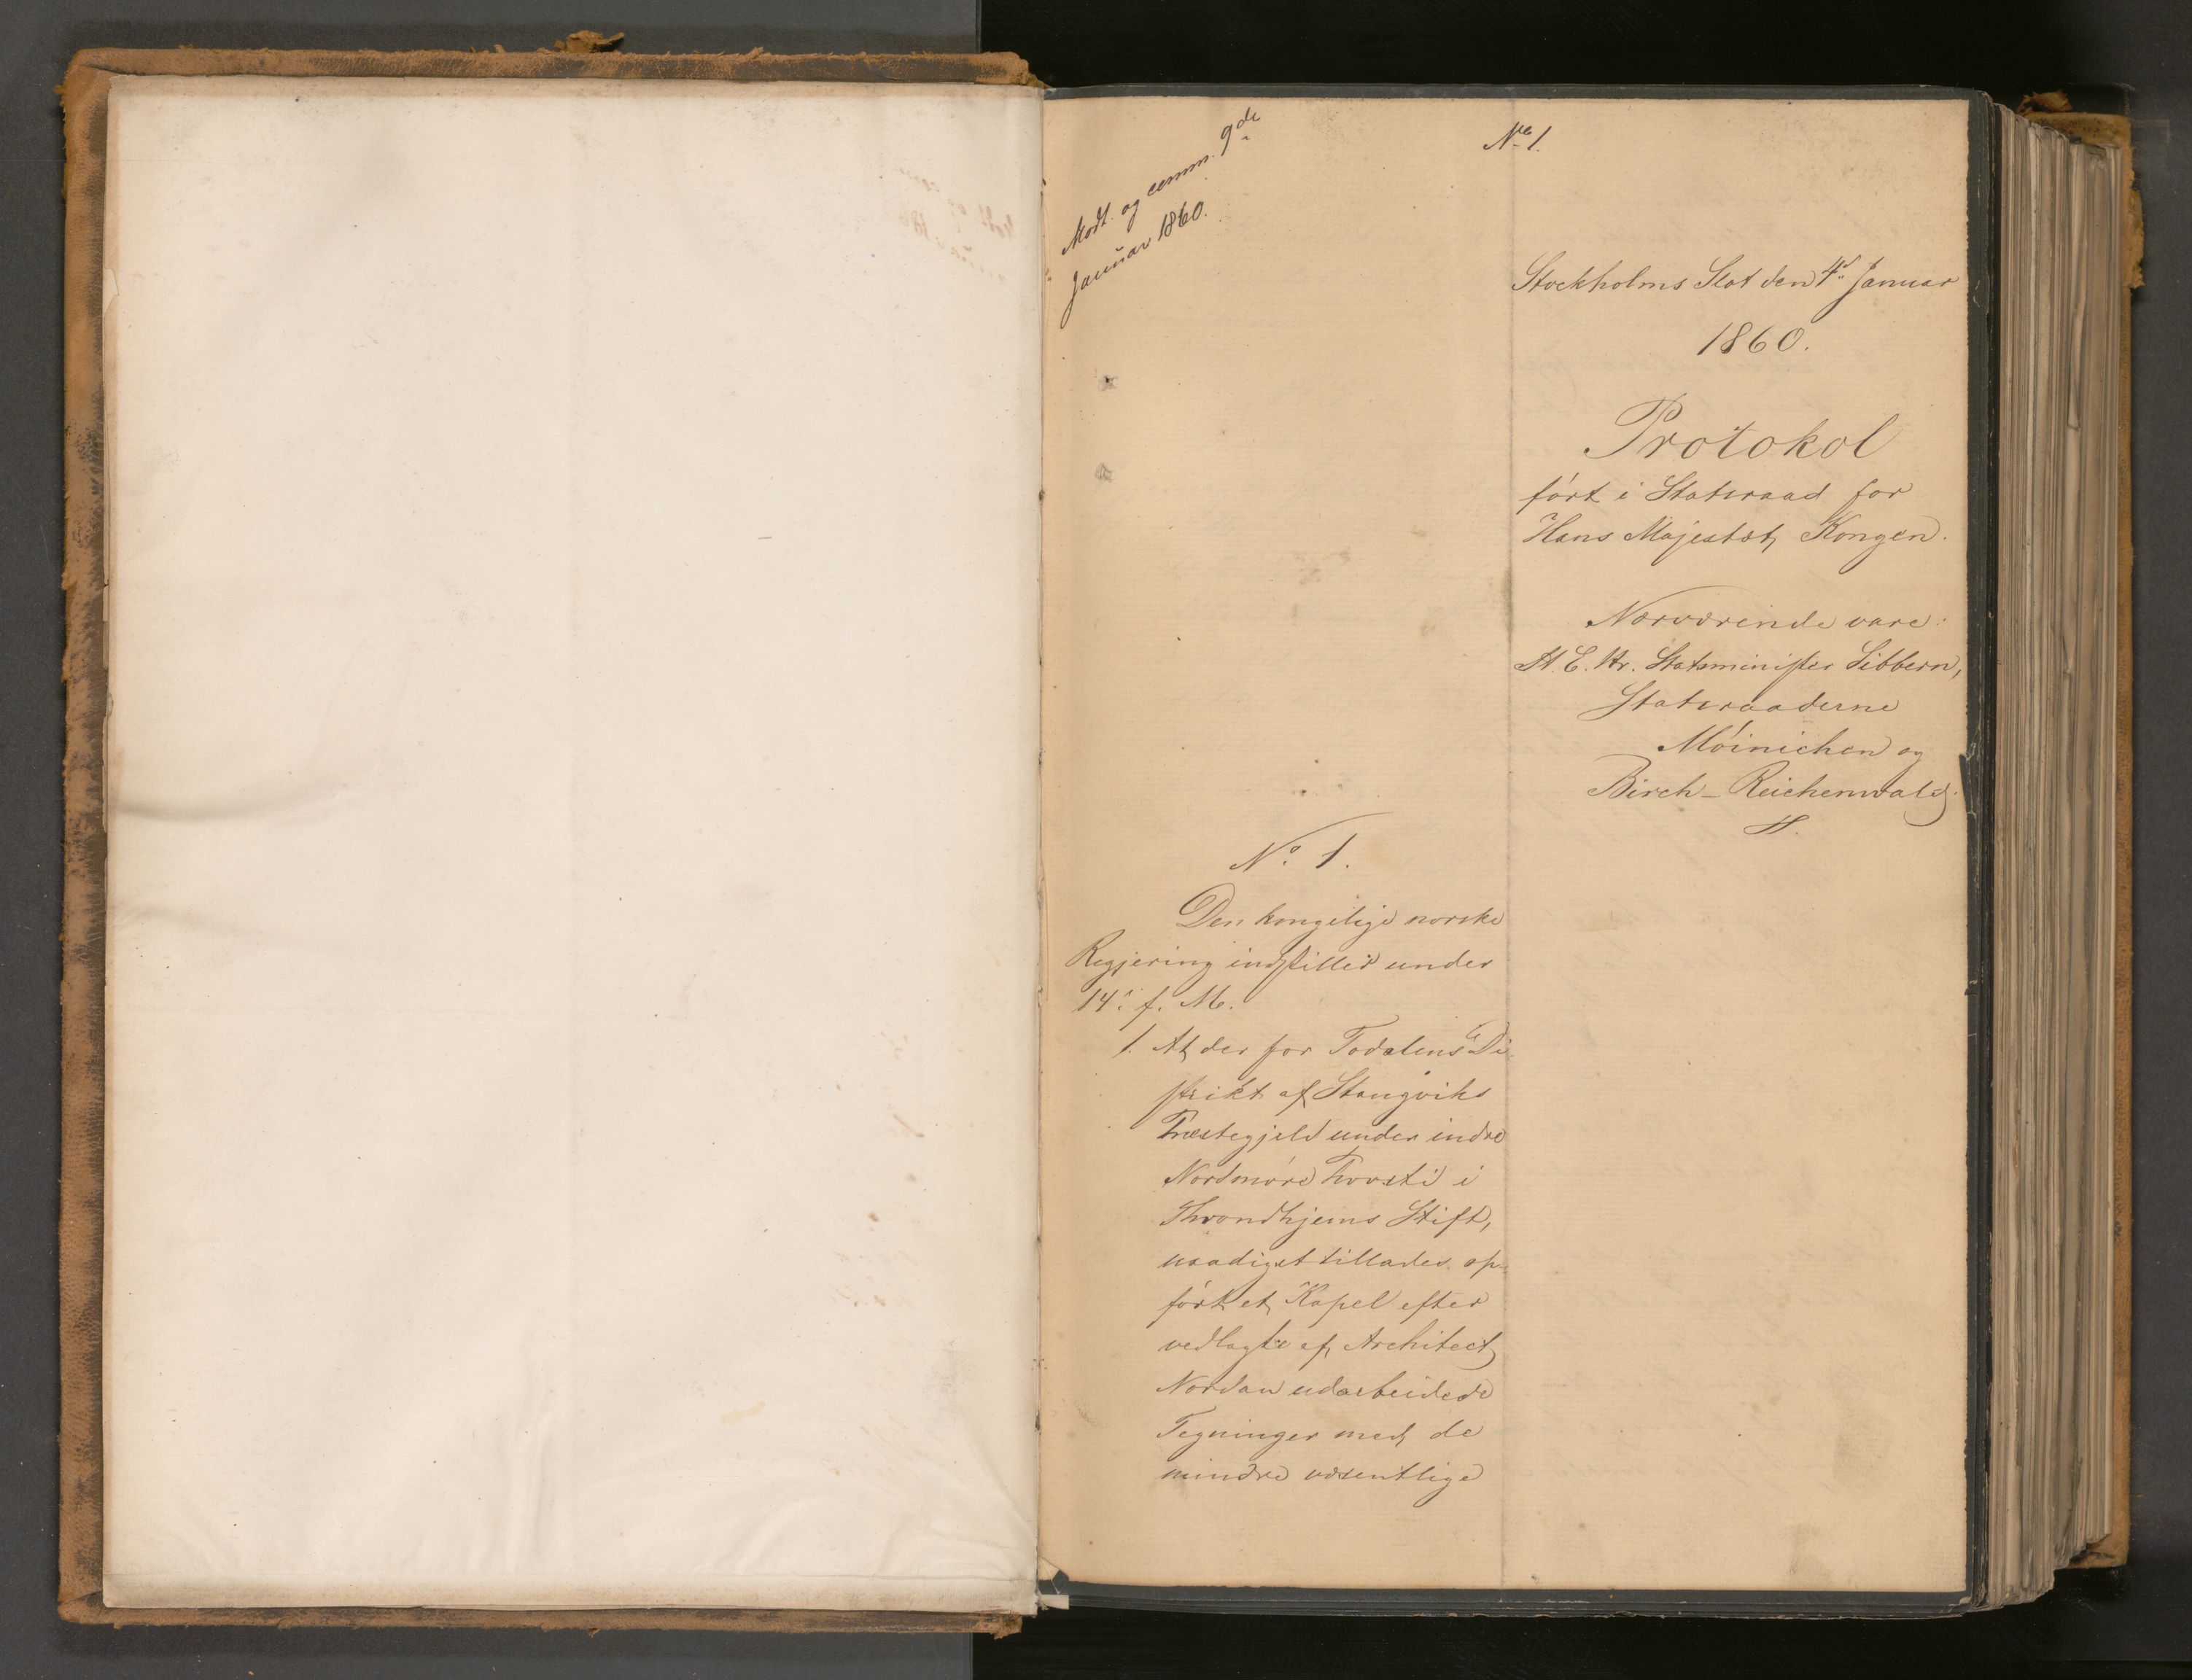 Modt. og comm. 9de
Januar 1860.
No 1.
Stockholms Slot den 4d Januar
1860.
Protokol
ført i Statsraad for
Hans Majestæt Kongen.
Nærværende vare:
H. E. Hr. Statsminister Sibbern,
Statsraaderne
Möinichen og
Birch-Reichenwald
No. 1.
Den kongelige norske
Regjering indstiller under
14. f. M.
1. At der for Todalens Di-
strikt af Stangviks
Præstegjeld under indre
Nordmøre Provsti i
Throndhjems Stift,
naadigst tillades op-
ført et Kapel efter
vedlagte af Architect
Nordan udarbeidede
Tegninger med de
mindre væsentlige